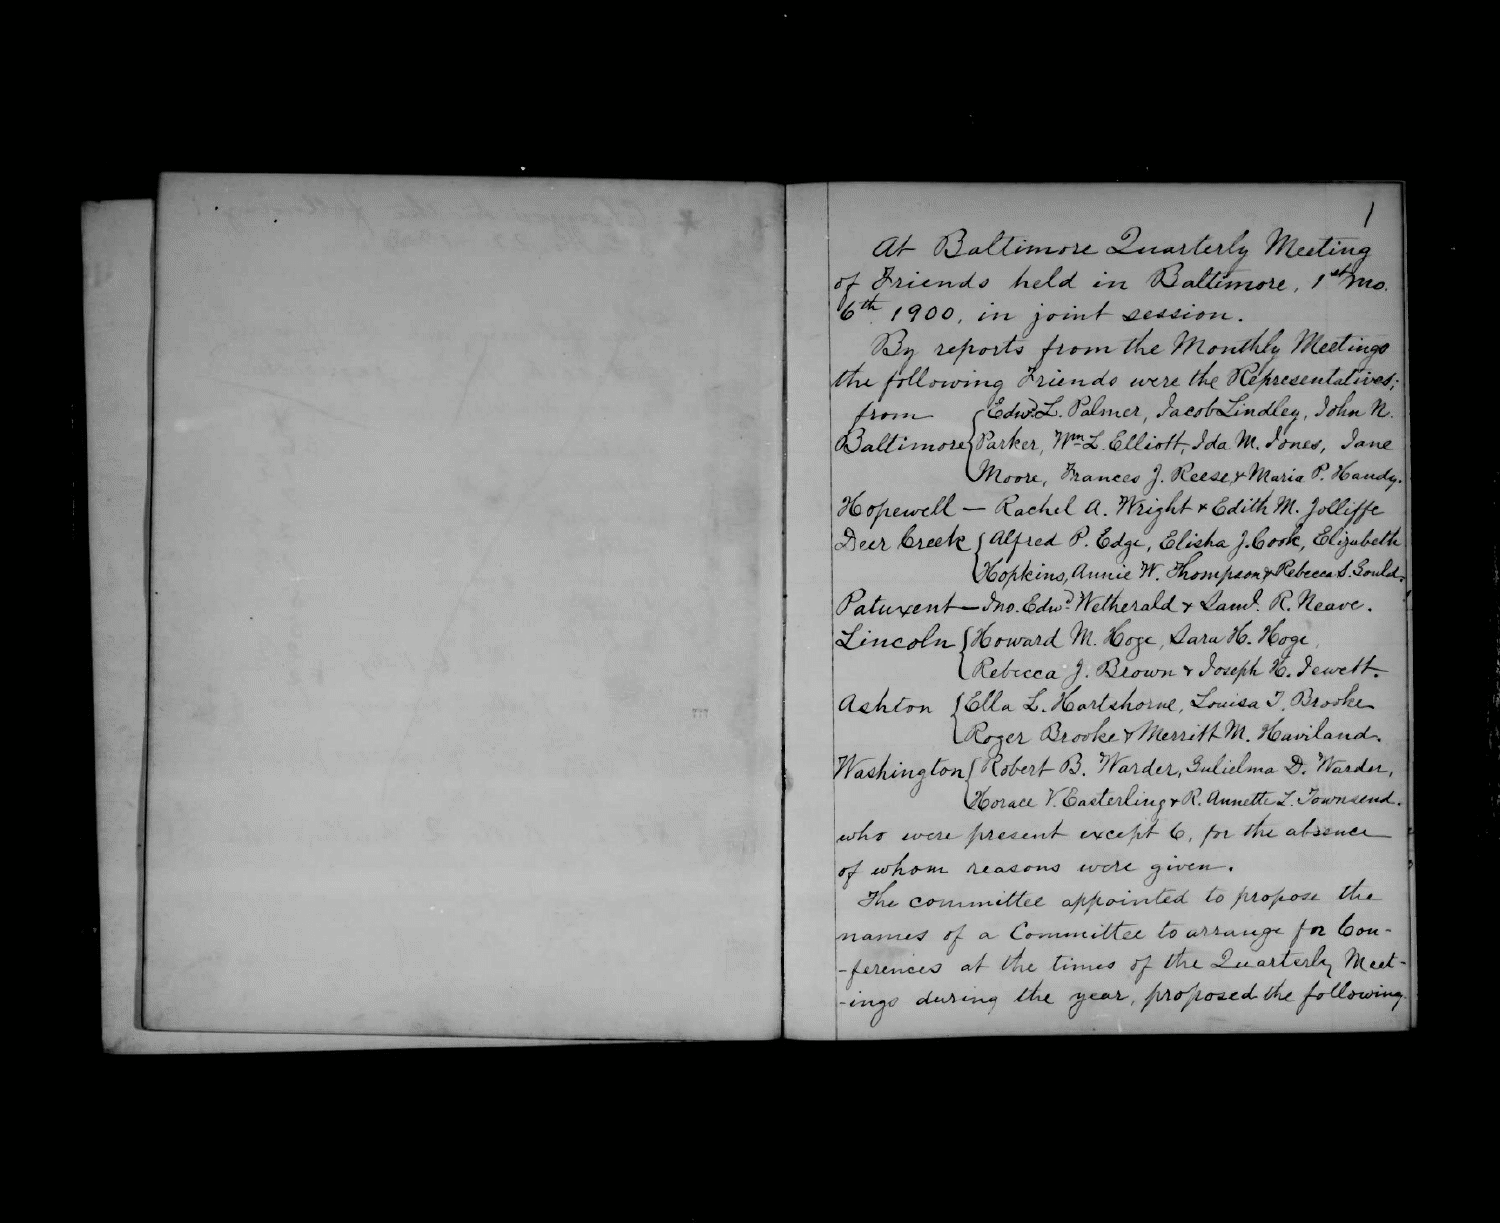 1
At Baltimore Quarterly Meeting
of Friends held in Baltimore, 1st mo.
6th 1900, in joint session.
By reports from the Monthly Meetings
the following Friends were the Representatives;
from { Edwd. L. Palmer, Jacob Lindley, John N.
Baltimore { Parker, Wm L. Elliott, Ida M. Jones, Jane
Moore, Frances J. Reese, & Maria P. Handy.
Hopewell — Rachel A. Wright & Edith M. Jolliffe
Deer Creek { Alfred P. Edge, Elisha J. Cook, Elizabeth
Hopkins, Annie W. Thompson & Rebecca S. Gould.
Patuxent — Jno. Edwd. Wetherald & Saml. R. Neave.
Lincoln { Howard M. Hoge, Sara H. Hoge,
Rebecca J. Brown & Joseph H. Jewett.
Ashton { Ella L. Hartshorne, Louisa T. Brooke
Roger Brooke & Merritt M. Haviland.
Washington { Robert B. Warder, Gulielma D. Warder,
Horace V. Easterling & R. Annette L. Townsend.
who were present except 6, for the absence
of whom reasons were given.
The committee appointed to propose the
names of a Committee to arrange for Con-
-ferences at the times of the Quarterly Meet-
-ings during the year, proposed the following